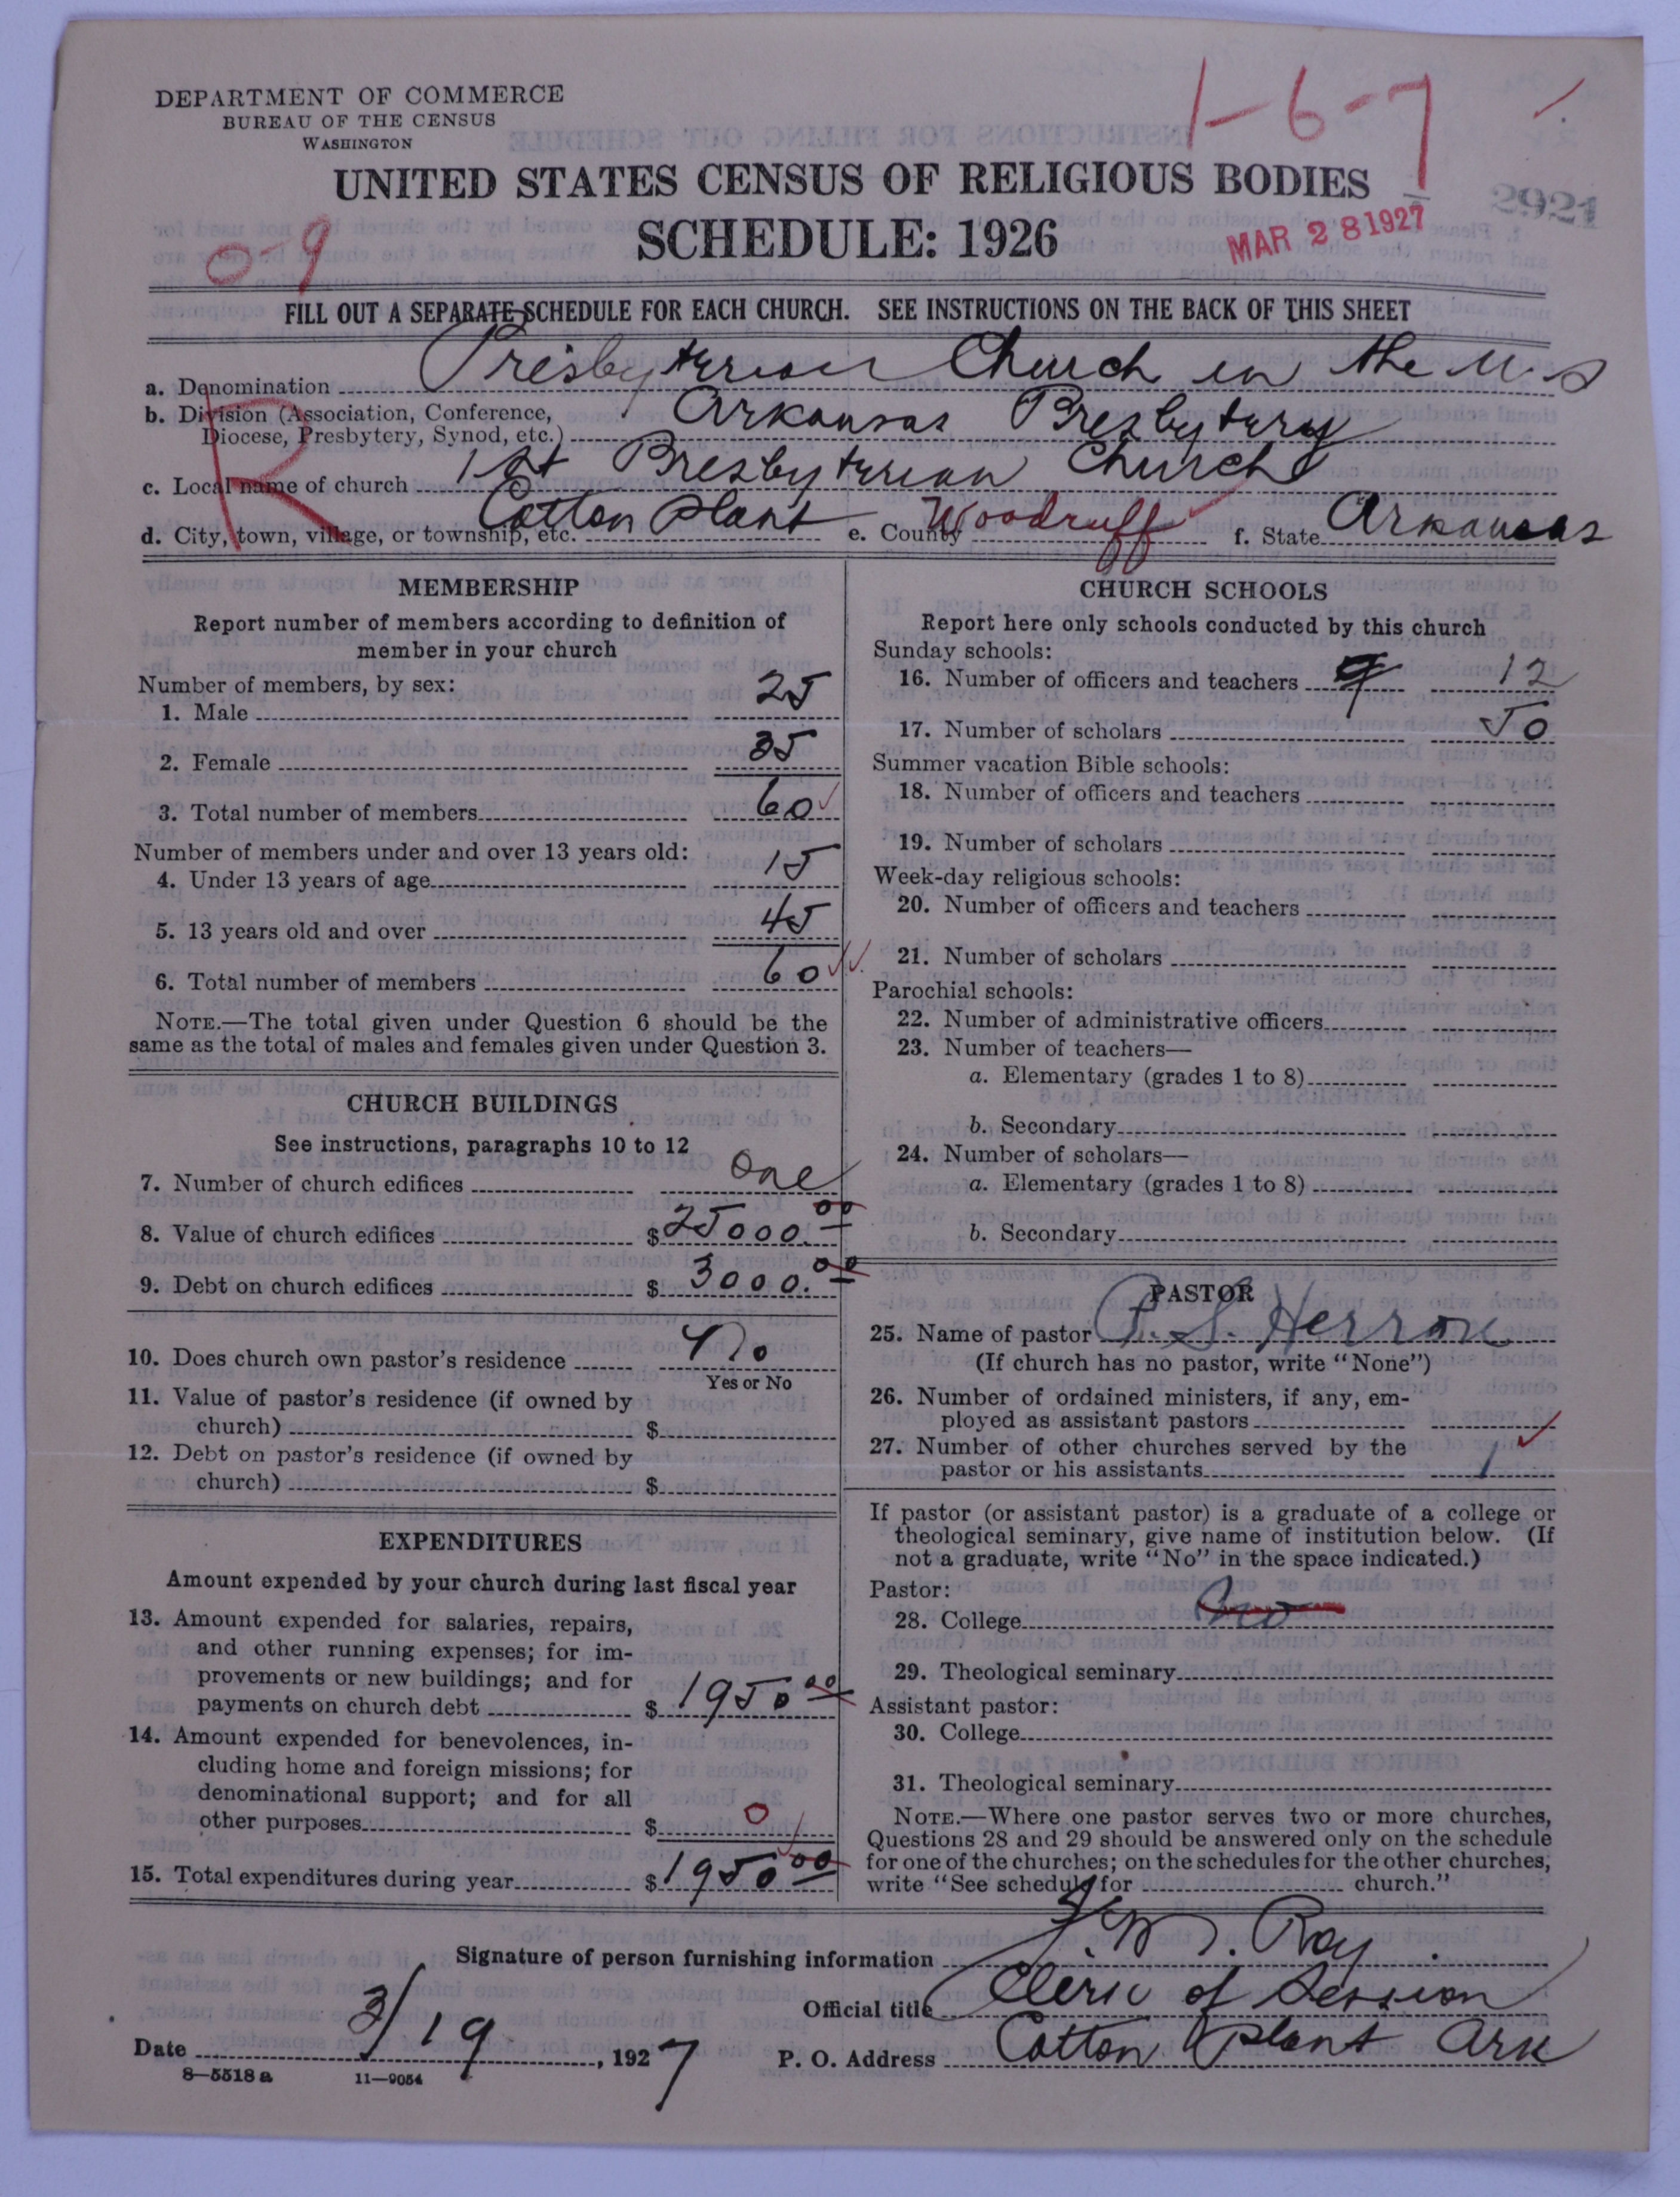 DEPARTMENT OF COMMERCE
BUREAU OF THE CENSUS
WASHINGTON
1-6-7
UNITED STATES CENSUS OF RELIGIOUS BODIES
SCHEDULE: 1926
MAR 28 1927
2921
0-9
FILL OUT A SEPARATE SCHEDULE FOR EACH CHURCH. SEE INSTRUCTIONS ON THE BACK OF THIS SHEET
a. Denomination Presbyterian Church in the U.S
b. Division (Association, Conference, Diocese, Presbytery, Synod, etc.) Arkansas Presbytery
R
c. Local name of church 1st Presbyterian Church
d. City, town, village, or township, etc. Cotton Plant e. County Woodruff f. State Arkansas
MEMBERSHIP
Report number of members according to definition of
member in your church
Number of members, by sex:
1. Male 25
2. Female 35
3. Total number of members 60
Number of members under and over 13 years old:
4. Under 13 years of age 15
5. 13 years old and over 45
6. Total number of members 60
NOTE.—The total given under Question 6 should be the
same as the total of males and females given under Question 3.
CHURCH BUILDINGS
See instructions, paragraphs 10 to 12
7. Number of church edifices One
8. Value of church edifices $25000.00
9. Debt on church edifices $3000.00
10. Does church own pastor's residence No
Yes or No
11. Value of pastor's residence (if owned by
church) $
12. Debt on pastor's residence (if owned by
church) $
EXPENDITURES
Amount expended by your church during last fiscal year
13. Amount expended for salaries, repairs,
and other running expenses; for im-
provements or new buildings; and for
payments on church debt $1950 00
14. Amount expended for benevolences, in-
cluding home and foreign missions; for
denominational support; and for all
other purposes $ 0
15. Total expenditures during year $1950 00
CHURCH SCHOOLS
Report here only schools conducted by this church
Sunday schools:
16. Number of officers and teachers 9 12
17. Number of scholars 50
Summer vacation Bible schools:
18. Number of officers and teachers
19. Number of scholars
Week-day religious schools:
20. Number of officers and teachers
21. Number of scholars
Parochial schools:
22. Number of administrative officers
23. Number of teachers—
a. Elementary (grades 1 to 8)
b. Secondary
24. Number of scholars—
a. Elementary (grades 1 to 8)
b. Secondary
PASTOR
25. Name of pastor P. S. Herron
(If church has no pastor, write "None")
26. Number of ordained ministers, if any, em-
ployed as assistant pastors
27. Number of other churches served by the
pastor or his assistants 1
If pastor (or assistant pastor) is a graduate of a college or
theological seminary, give name of institution below. (If
not a graduate, write "No" in the space indicated.)
Pastor:
28. College No
29. Theological seminary
Assistant pastor:
30. College
31. Theological seminary
NOTE.—Where one pastor serves two or more churches,
Questions 28 and 29 should be answered only on the schedule
for one of the churches; on the schedules for the other churches,
write "See schedule for church."
Signature of person furnishing information Ray
Official title Clerk of Session
Date 3/19, 1927 P. O. Address Cotton Plant Ark
8—5518 a 11—9054